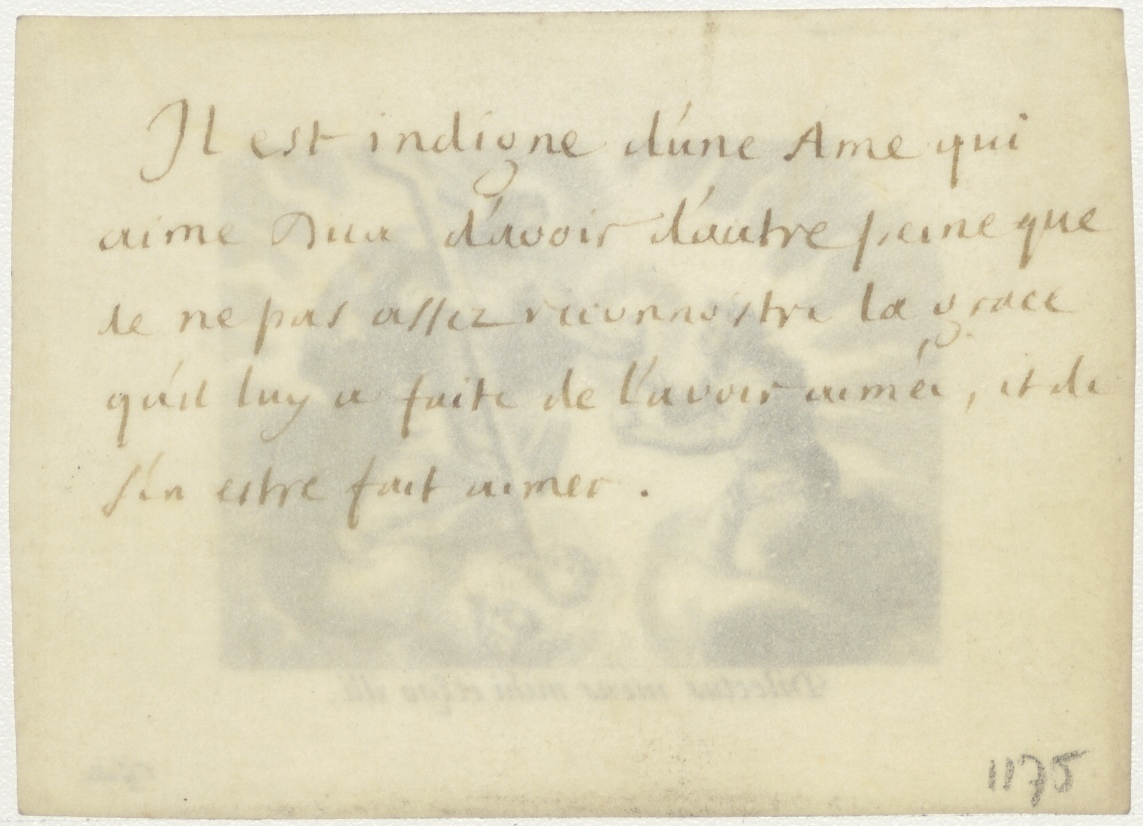 Il est indigne d'une Ame qui
aime Dieu d'avoir d'autre peine que
de ne pas assez reconnoistre la grace
qu'il luy a faite de l'avoir aimée, et de
s'en estre fait aimer.
Dilectus meus mihi et ego illi.
1175